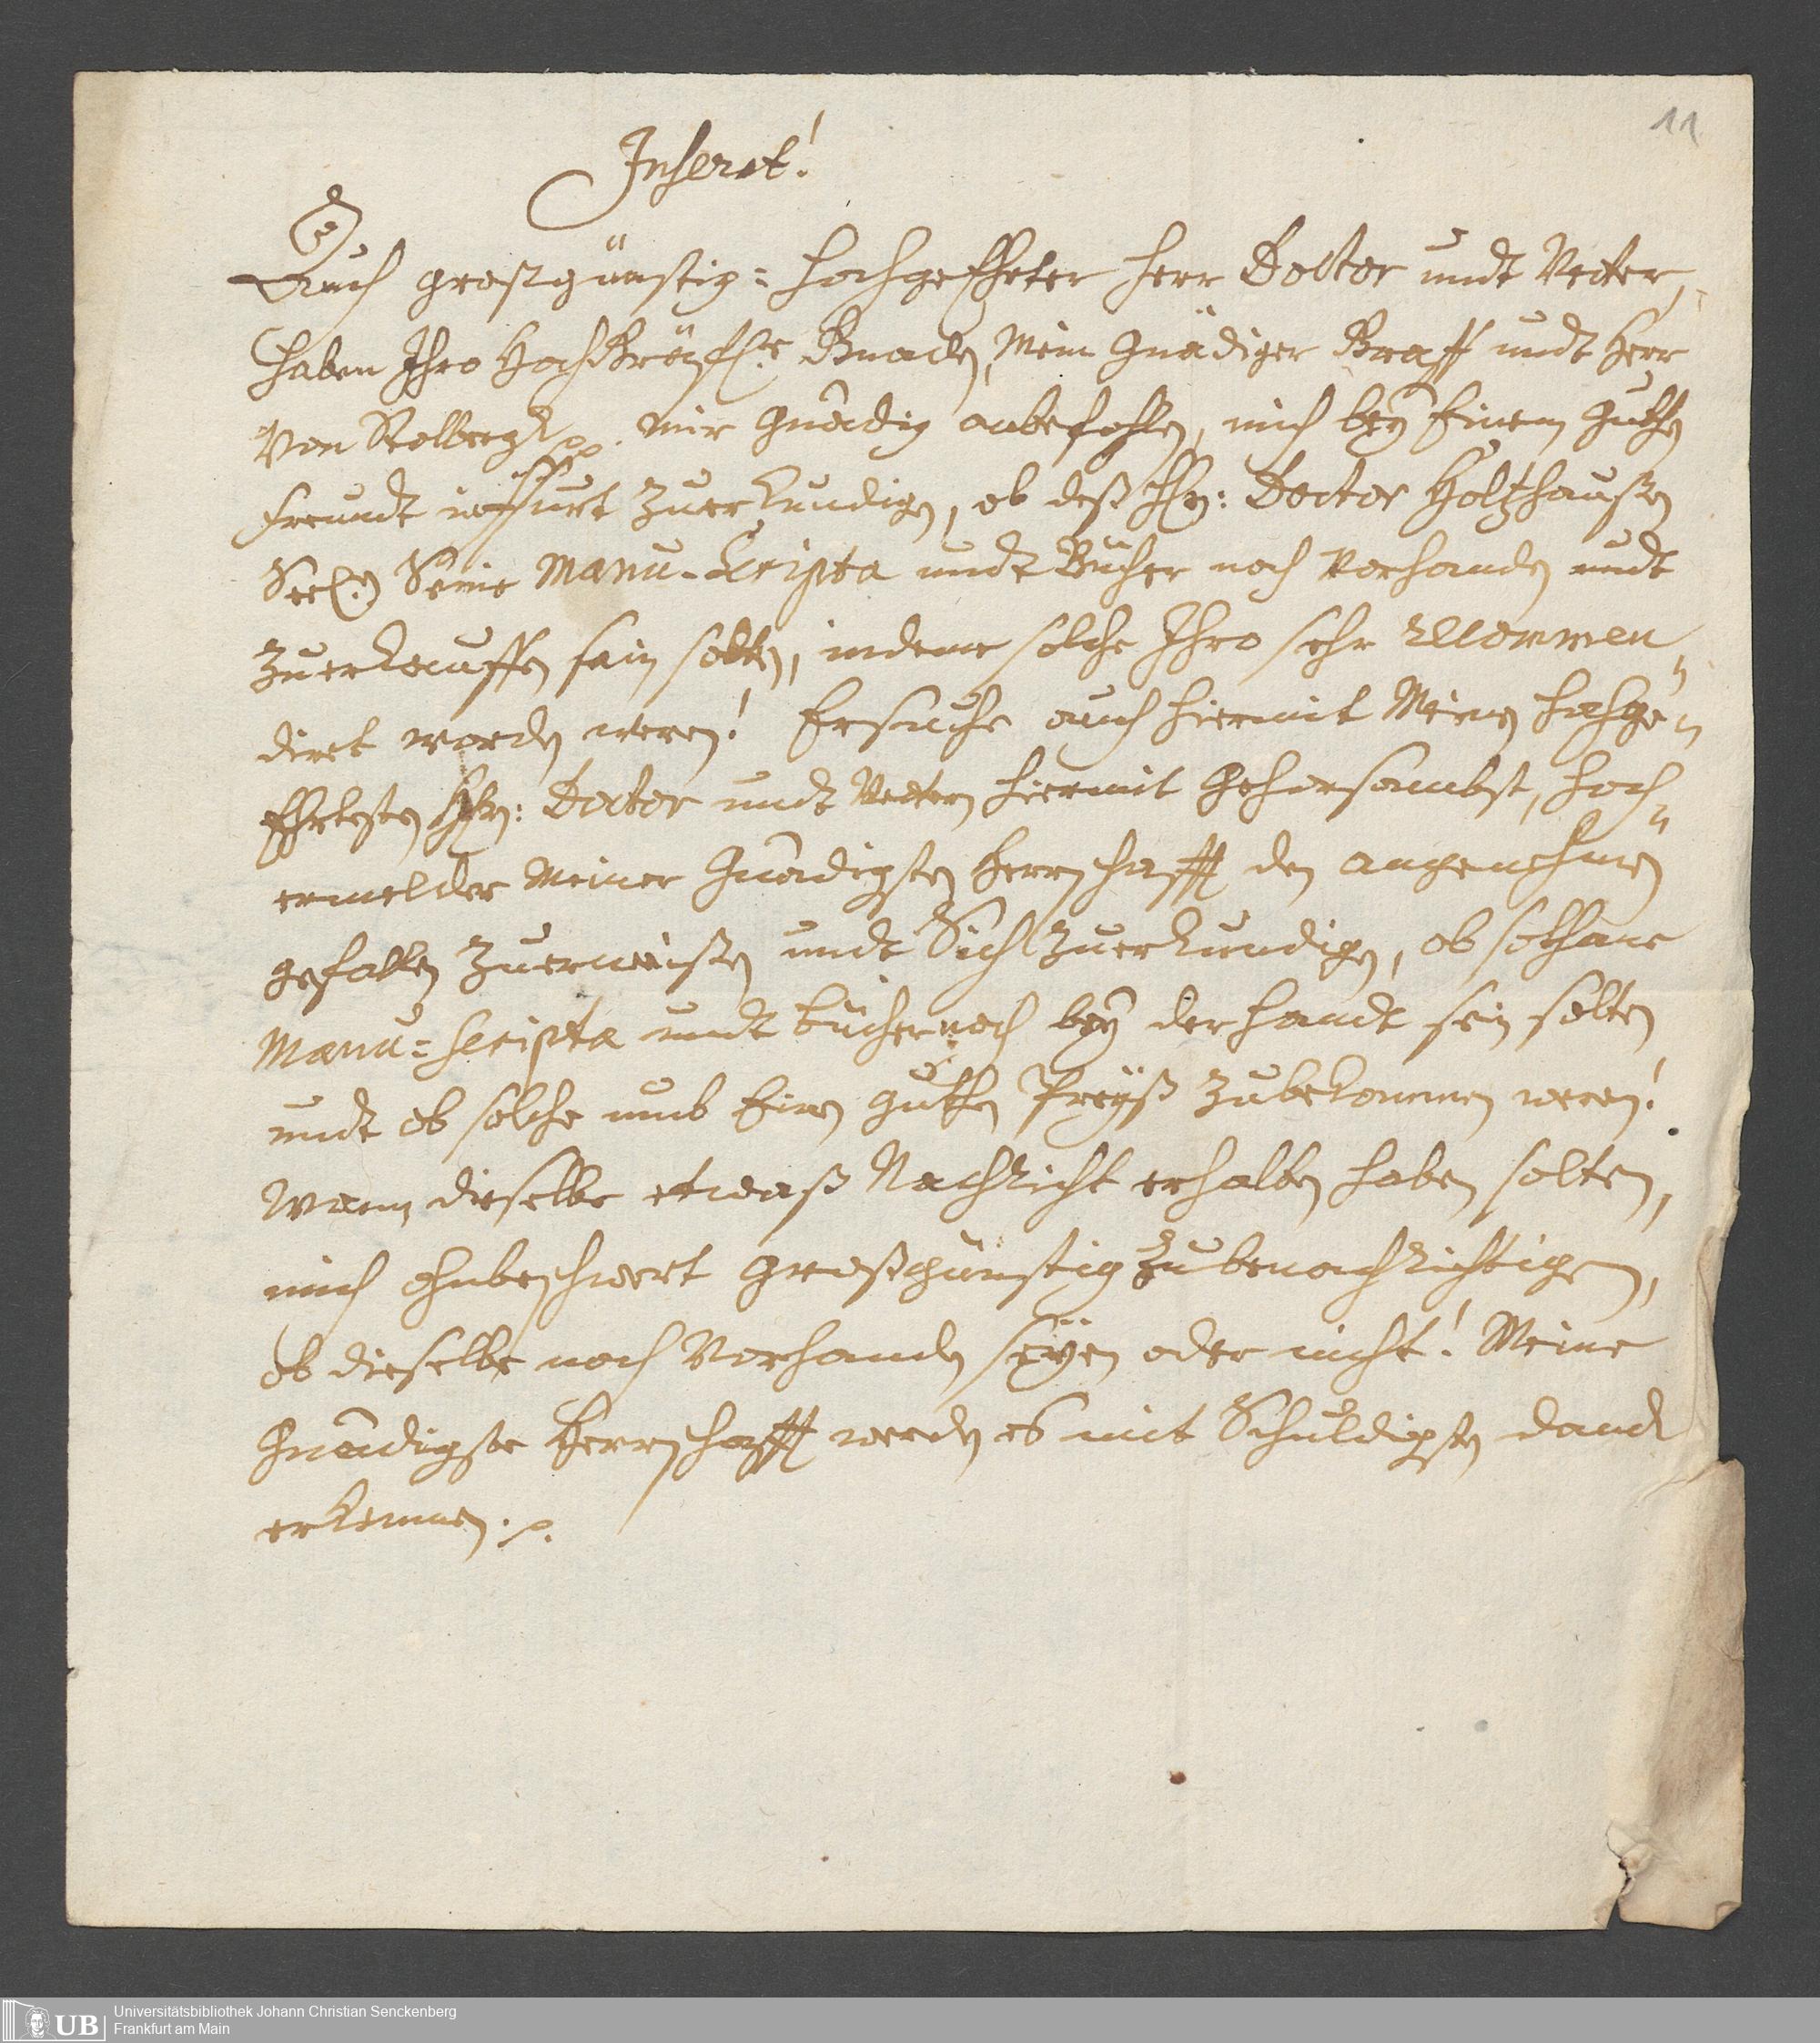 11
Inserat!
Auch großgünstig= Hochgeehrter Herr Doctor undt Vetter,
haben Ihro HochGräffl.e Gnaden, Mein Gnädiger Graff undt Herr
von Stolbergk pp. mir Gnädig anbefohlen, mich bey Einem guthen
Freundt in ffurt zuerkundigen, ob deß Hhn: Doctor Holtzhaußen
Seel.en Seine Manu-Scripta undt Bücher noch vorhanden undt
zuerkauffen sein solten, indeme solche Ihro sehr recommen„
dirt worden weren! Ersuche auch hiermit Meinen Hochge„
Ehrtesten Hhn: Doctor undt Vettern hiermit Gehorsambst, hoch„
ermelder Meiner Gnädigsten Herrschafft den angenehmen
gefallen zuerweißen undt Sich zuerkundigen, ob sothane
Manu=scripta undt bücher noch bey der handt sein solten
undt ob solche umb Einen guthen Preyß zubekommen weren!
Wann dieselbe etwaß Nachricht erhalten haben solten,
mich ohnbeschwert großgünstig zubenachrichtigen,
ob dieselbe noch Vorhanden seyen oder nicht! Meine
Gnädigste Herrschafft werden es mit Schuldigsten danck
erkennen. p.
UB
Universitätsbibliothek Johann Christian Senckenberg
Frankfurt am Main